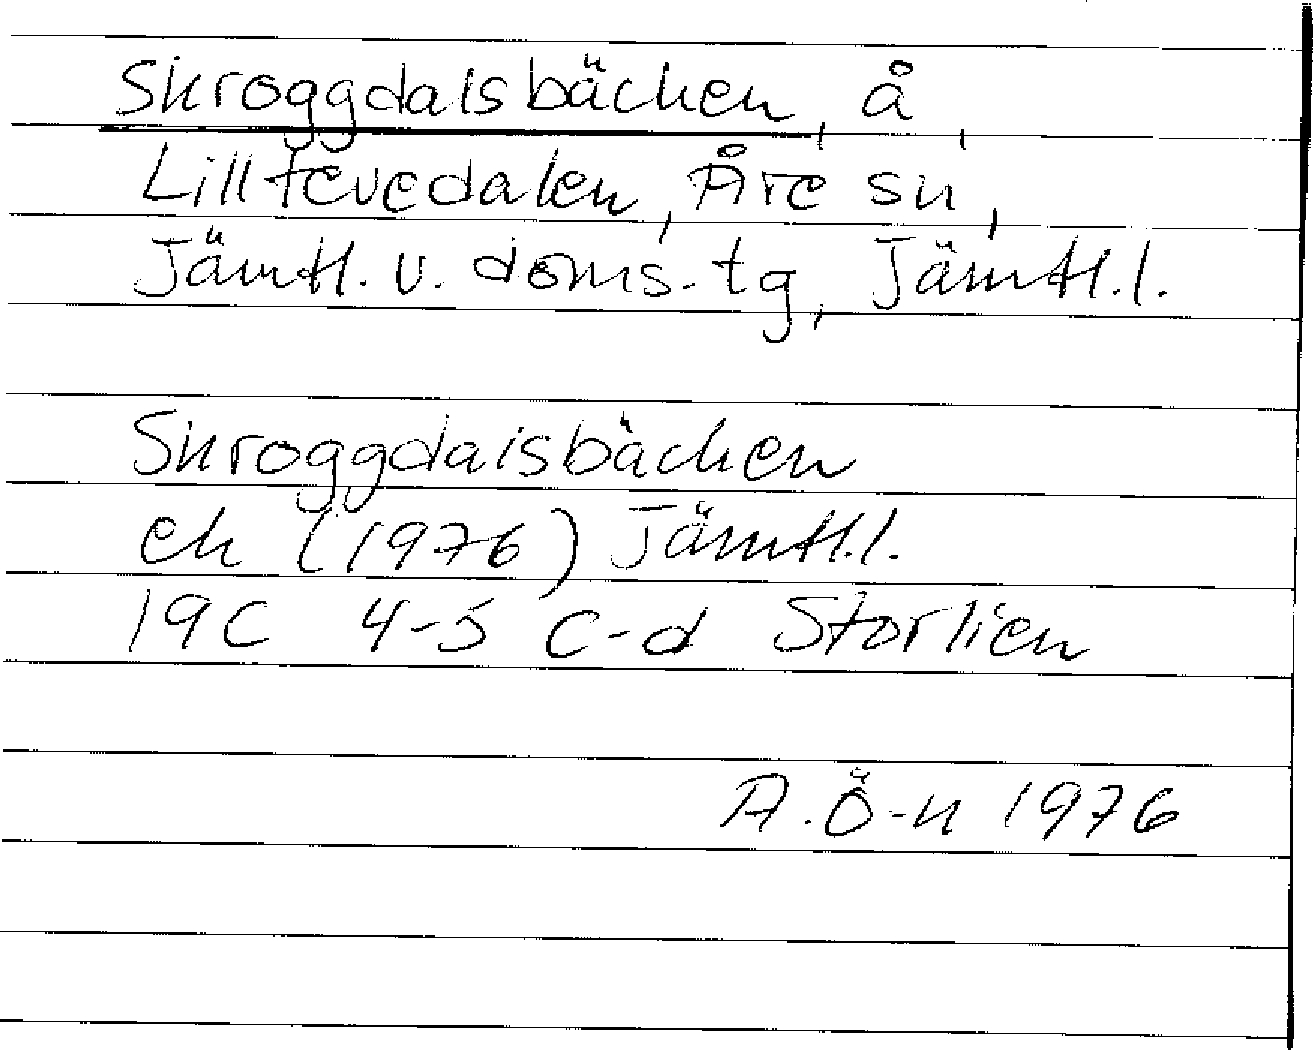 Skroggdalsbäcken, å,
Lillfevedalen, Åre sn,
Jämtl. v. doms.tg, Jämtl.l.
Skroggdalsbäcken
ek (1976) Jämtl.l.
19C 4-5 c-d Storlien
A.Ö-n 1976